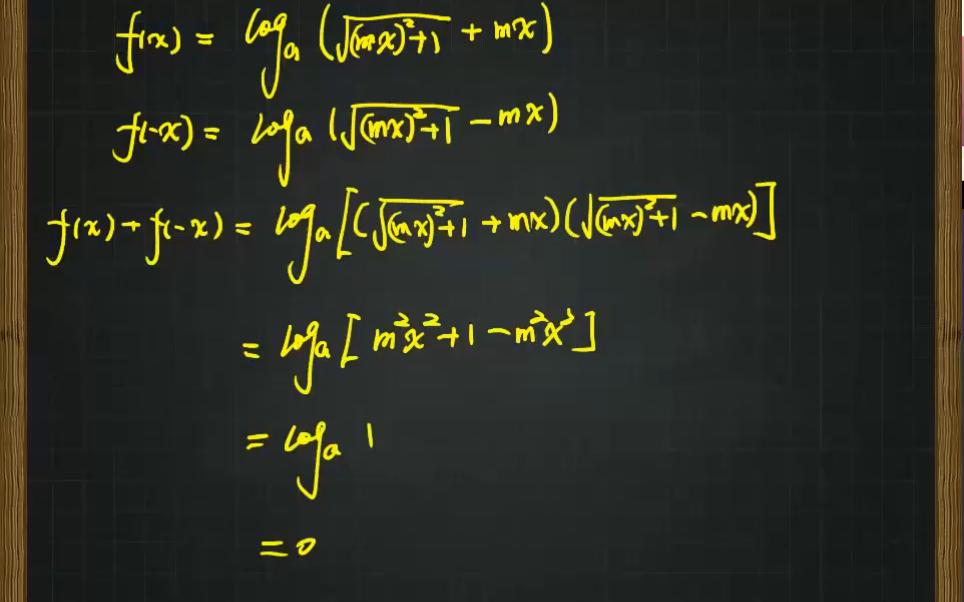 f(x) = logₐ (√((mx)²+1) + mx)
f(-x) = logₐ (√((mx)²+1) - mx)
f(x) + f(-x) = logₐ [(√((mx)²+1) + mx)(√((mx)²+1) - mx)]
= logₐ [m²x²+1 - m²x²]
= logₐ 1
= 0